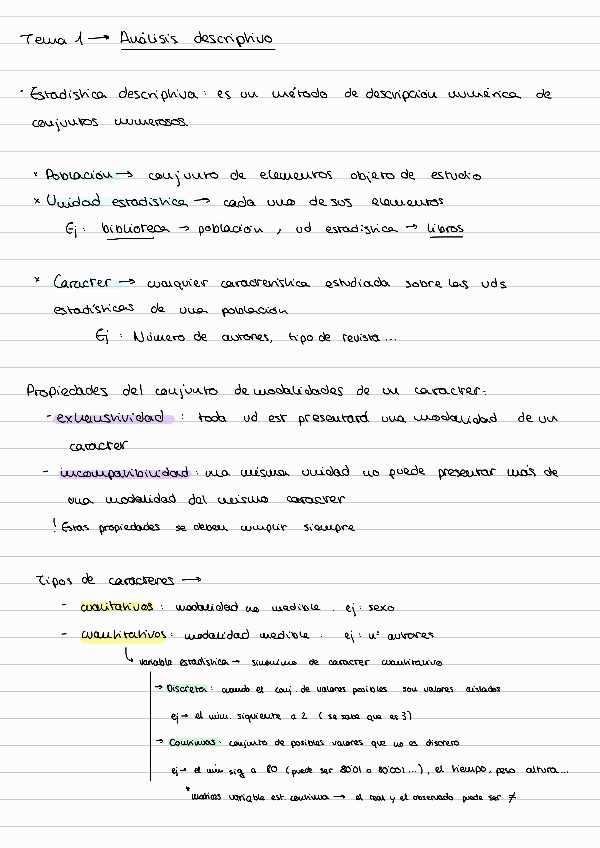 Tema 1 → Análisis descriptivo
· Estadística descriptiva: es un método de descripción numérica de
conjuntos numerosos.
* Población → conjunto de elementos objeto de estudio
* Unidad estadística → cada uno de sus elementos
Ej: biblioteca → población, ud estadística → libros
* Caracter → cualquier característica estudiada sobre las uds
estadísticas de una población
Ej: Número de autores, tipo de revista...
Propiedades del conjunto de modalidades de un caracter:
- exhaustividad: toda ud est presentará una modalidad de un
caracter
- incompatibilidad: una misma unidad no puede presentar más de
una modalidad del mismo caracter
! Estas propiedades se deben cumplir siempre
Tipos de caracteres →
- cualitativos: modalidad no medible. ej: sexo
- cuantitativos: modalidad medible. ej: nº autores
↳ variable estadística → sinónimo de caracter cuantitativo
→ Discreta: cuando el conj. de valores posibles son valores aislados
ej → el núm. siguiente a 2 (se sabe que es 3)
→ Continuas: conjunto de posibles valores que no es discreto
ej → el núm sig a 80 (puede ser 80'01 o 80'001...), el tiempo, peso altura...
* matices variable est. continua → el real y el observado puede ser ≠